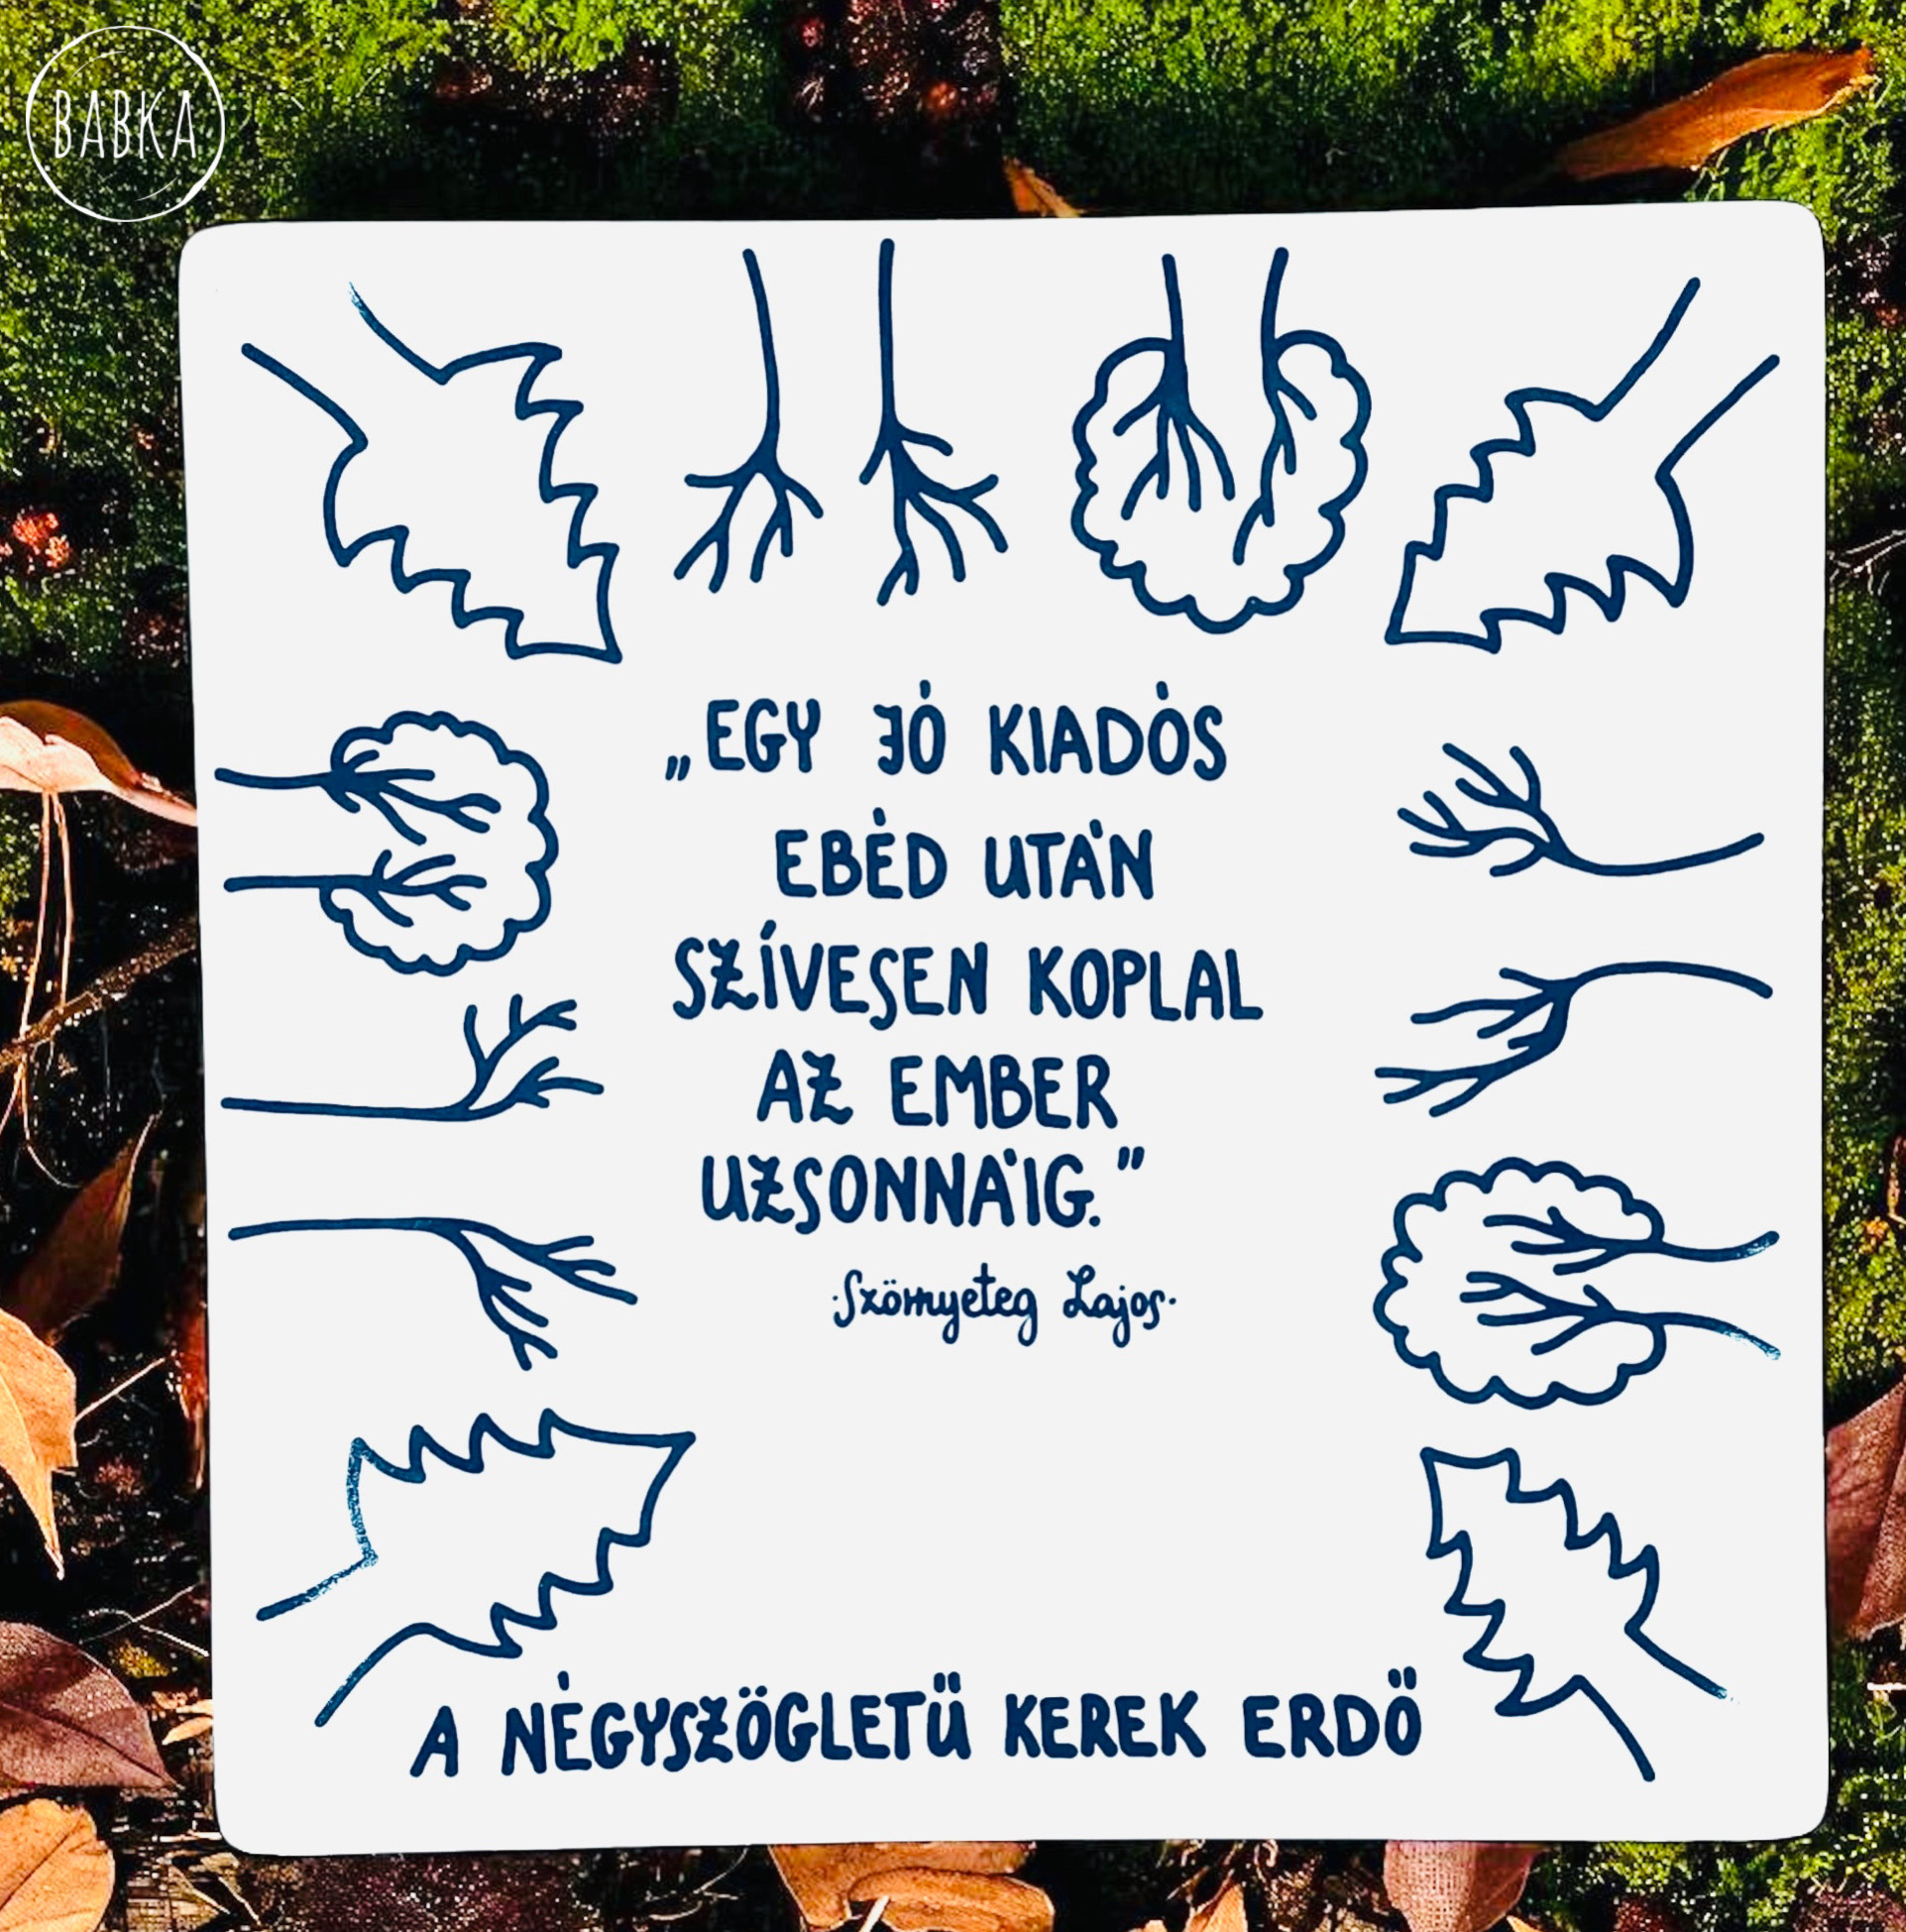 BABKA
„EGY JÓ KIADÓS
EBÉD UTÁN
SZÍVESEN KOPLAL
AZ EMBER
UZSONNÁIG."
·Szörnyeteg Lajos·
A NÉGYSZÖGLETŰ KEREK ERDŐ